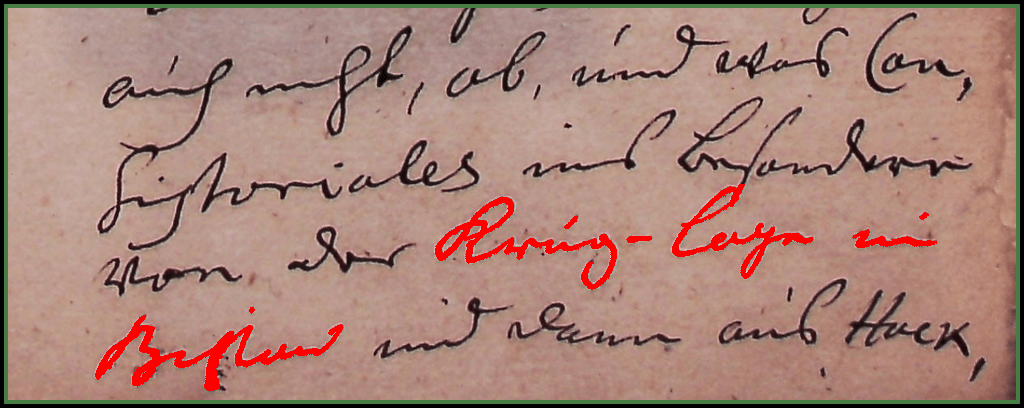 auch nicht, ob, und was Con,
sistoriales ins besondere
von der Krüg-Lage in
und dann aus Hack,